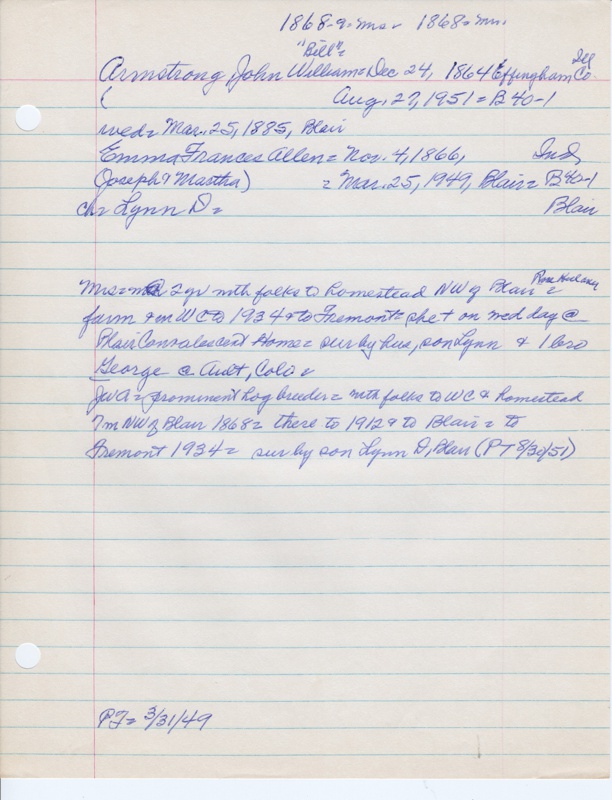 1868-9=mr= 1868=mr.
"Bill"=
Armstrong, John William=Dec. 24, 1864 Effingham Co. Ill
( Aug. 27, 1951=B 40-1
wed= Mar. 25, 1885, Blair
Emma Frances Allen= Nov. 4, 1866, Ind,
(Joseph & Martha) = Mar. 25, 1949, Blair= B40-1
ch= Lynn D= Blair
Mrs=m@ 2yr with folks to homestead NW of Blair =
farm & in WC to 1934 & to Fremont= she + on wed day @
Blair Convalescent Home= sur by hus, son Lynn & 1 bro
George @ Ault, Colo=
JWA= prominent hog breeder= with folks to WC & homestead
7m NW of Blair 1868= there to 1912 & to Blair= to
Fremont 1934= sur by son Lynn D, Blair (PT 8/30/51)
PT= 3/31/49